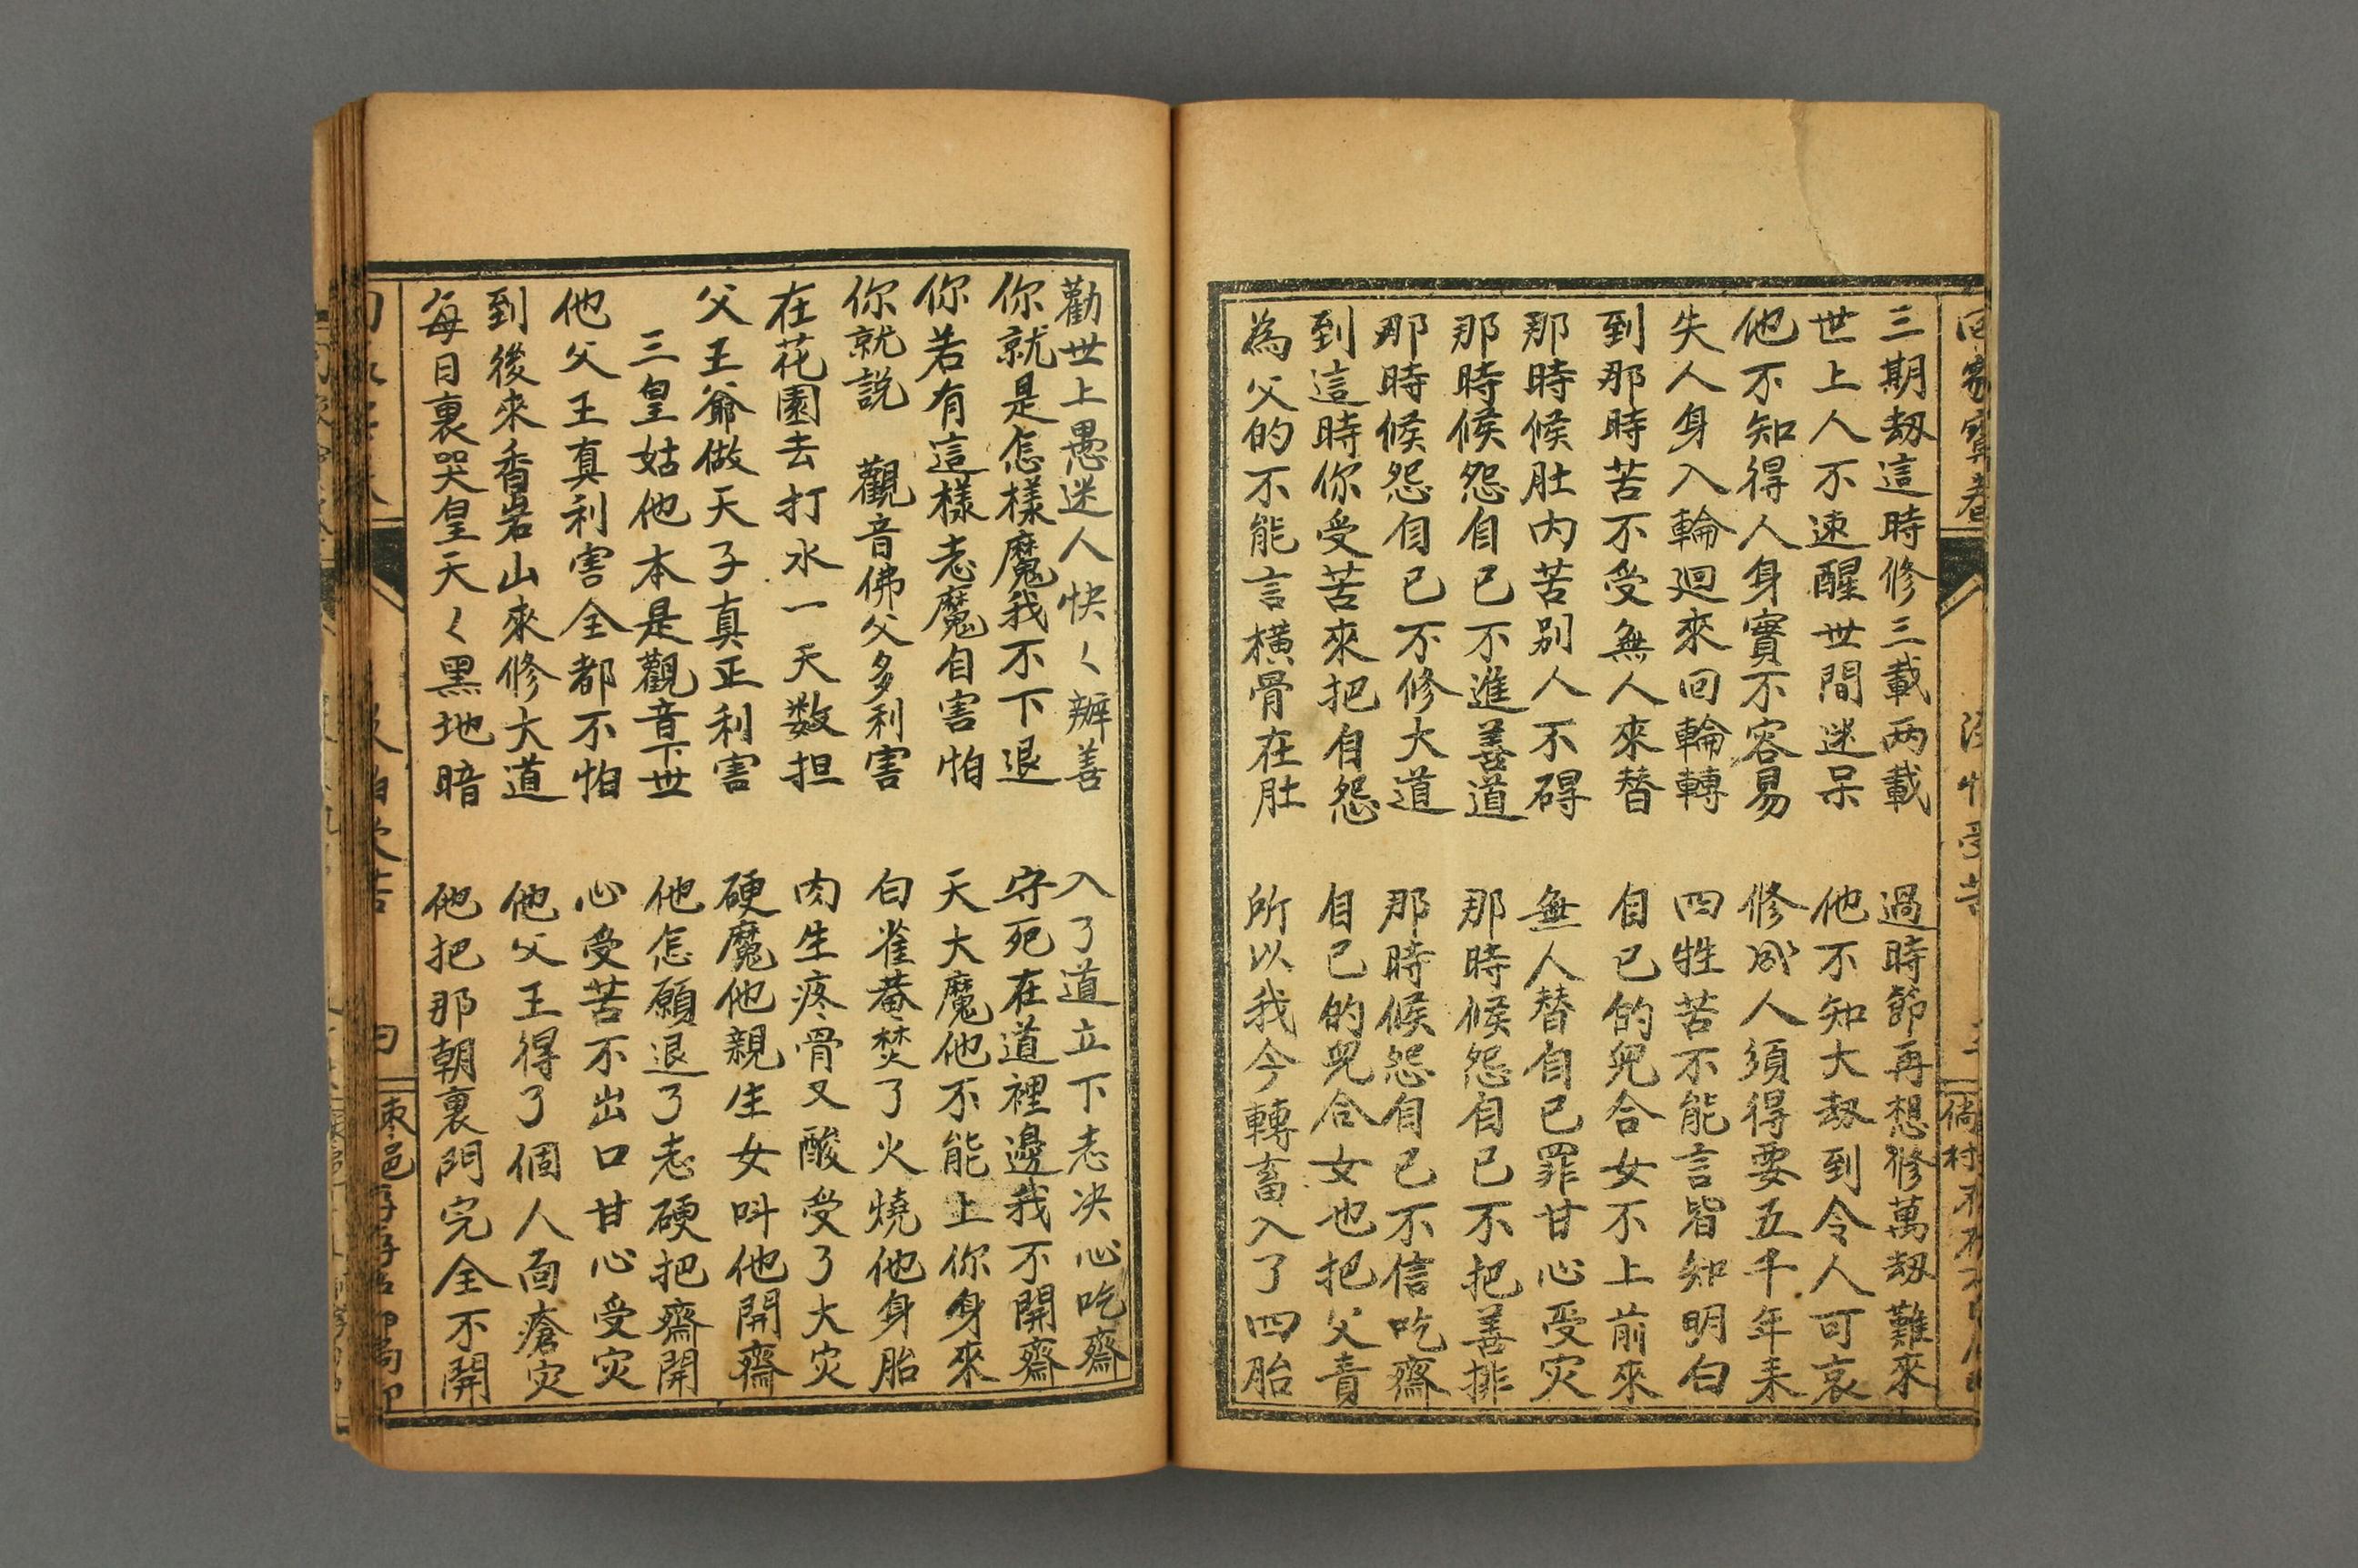 回家寶卷
三期劫這時修三載两載 過時節再想修萬劫難來
世上人不速醒世間迷呆 他不知大劫到令人可哀
他不知得人身實不容易 修成人須得要五千年来
失人身入輪迴來回輪轉 四牲苦不能言皆知明白
到那時苦不受無人來替 自已的兒合女不上前來
那時候肚内苦别人不碍 無人替自已罪甘心受灾
那時候怨自已不進善道 那時候怨自已不把善排
那時候怨自已不修大道 那時候怨自已不信吃齋
到這時你受苦來把自怨 自已的兒合女也把父責
為父的不能言横骨在肚 所以我今轉畜入了四胎
勸世上愚迷人快く辦善 入了道立下志决心吃齋
你就是怎樣魔我不下退 守死在道裡邊我不開齋
你若有這樣志魔自害怕 天大魔他不能上你身來
你就説 觀音佛父多利害 白雀菴焚了火燒他身胎
在花園去打水一天数担 肉生疼骨又酸受了大灾
父王爺做天子真正利害 硬魔他親生女叫他開齋
三皇姑他本是觀音下世 他怎願退了志硬把齋開
他父王真利害全都不怕 心受苦不出口甘心受灾
到後來香岩山來修大道 他父王得了個人面瘡灾
每日裏哭皇天く黑地暗 他把那朝裏門完全不開